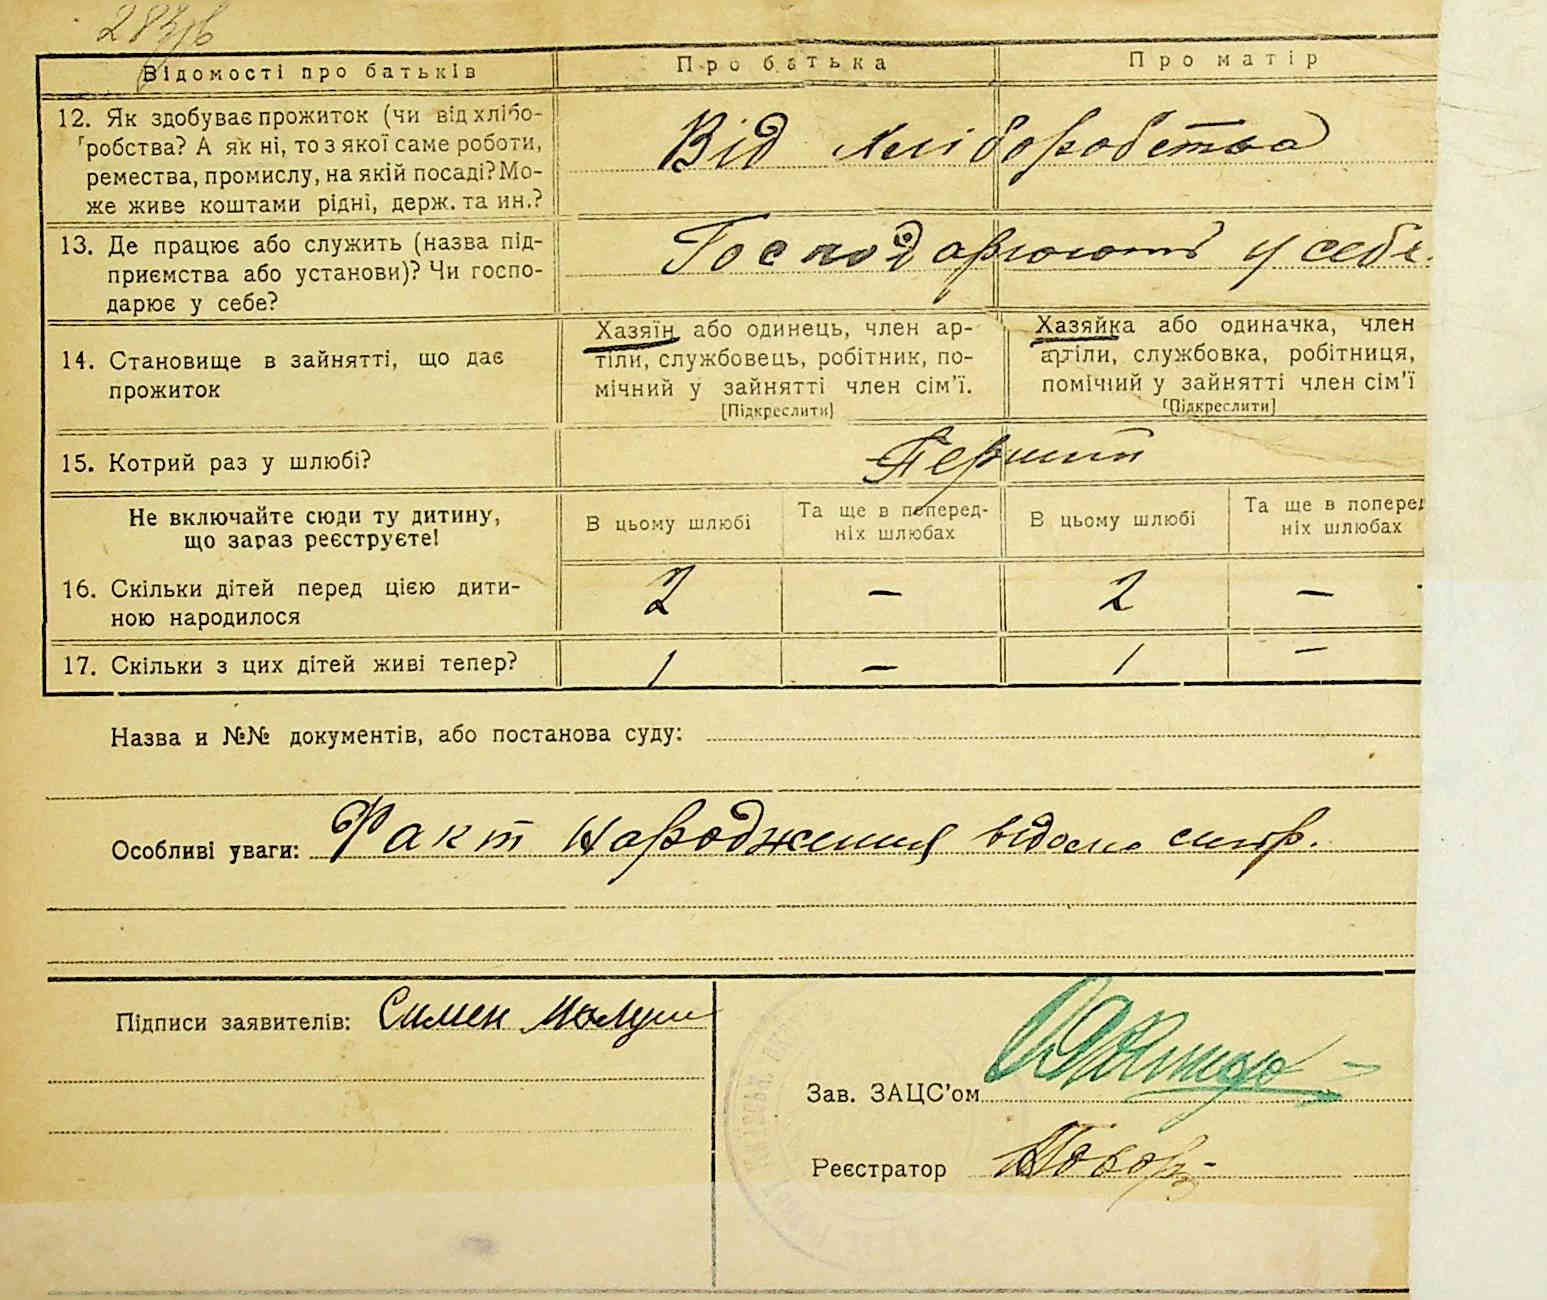 Відомості про батьків
Про батька
Про матір
12. Як здобуває прожиток (чи від хлібо-
робства? А як ні, то з якої саме роботи,
ремества, промислу, на якій посаді? Мо-
же живе коштами рідні, держ. та ин.?
Від хліборобства
13. Де працює або служить (назва під-
приємства або установи)? Чи госпо-
дарює у себе?
Господарюють у себе.
14. Становище в зайнятті, що дає
прожиток
Хазяїн або одинець, член ар-
тіли, службовець, робітник, по-
мічний у зайнятті член сім'ї.
[Підкреслити]
Хазяйка або одиначка, член
артіли, службовка, робітниця,
помічний у зайнятті член сім'ї
[Підкреслити]
15. Котрий раз у шлюбі?
Перший
Не включайте сюди ту дитину,
що зараз реєструєте!
В цьому шлюбі
Та ще в поперед-
ніх шлюбах
В цьому шлюбі
Та ще в поперед
ніх шлюбах
16. Скільки дітей перед цією дити-
ною народилося
2 — 2 —
17. Скільки з цих дітей живі тепер?
1 — 1 —
Назва и №№ документів, або постанова суду:
Особливі уваги: Факт народження відомо
Підписи заявителів: Симен
Зав. ЗАЦС'ом
Реєстратор